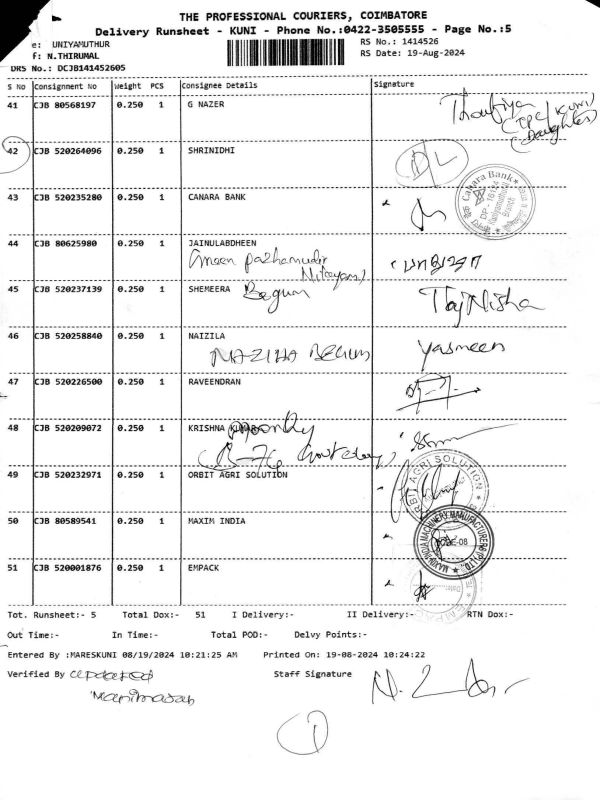 THE PROFESSIONAL COURIERS, COIMBATORE
Delivery Runsheet - KUNI - Phone No.:0422-3505555 - Page No.:5
e: UNIYAMUTHUR RS No.: 1414526
f: N.THIRUMAL RS Date: 19-Aug-2024
DRS No.: DCJB141452605
S No Consignment No Weight PCS Consignee Details Signature
41 CJB 80568197 0.250 1 G NAZER
(Daughter)
42 CJB 520264096 0.250 1 SHRINIDHI DL
43 CJB 520235280 0.250 1 CANARA BANK
Canara Bank
Branch
44 CJB 80625980 0.250 1 JAINULABDHEEN
Ameen pazhamudir
45 CJB 520237139 0.250 1 SHEMEERA Begum TajNisha
46 CJB 520258840 0.250 1 NAIZILA yasmeen
NAZIHA BEGUM
47 CJB 520226500 0.250 1 RAVEENDRAN
48 CJB 520209072 0.250 1 KRISHNA KUMAR
B-76
49 CJB 520232971 0.250 1 ORBIT AGRI SOLUTION
AGRI SOLUTION
50 CJB 80589541 0.250 1 MAXIM INDIA
51 CJB 520001876 0.250 1 EMPACK
Tot. Runsheet:- 5 Total Dox:- 51 I Delivery:- II Delivery:- RTN Dox:-
Out Time:- In Time:- Total POD:- Delvy Points:-
Entered By :MARESKUNI 08/19/2024 10:21:25 AM Printed On: 19-08-2024 10:24:22
Verified By updated Staff Signature
Manimaran
1